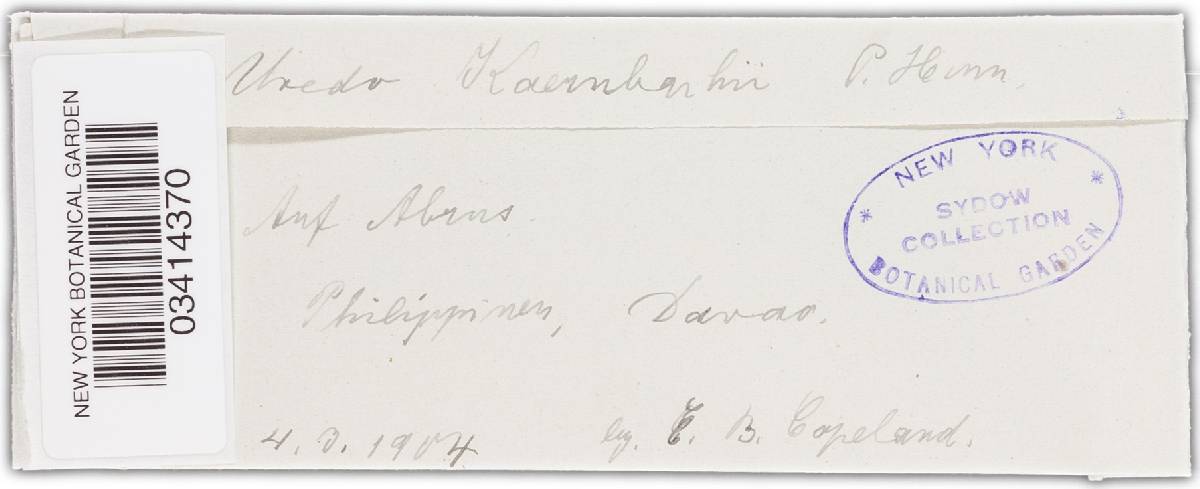 Uredo Kaernbachii P. Henn.
Auf Abrus.
Philippinen, Davao.
4. 3. 1904 leg. E. B. Copeland.
NEW YORK
SYDOW
COLLECTION
BOTANICAL GARDEN
NEW YORK BOTANICAL GARDEN
03414370